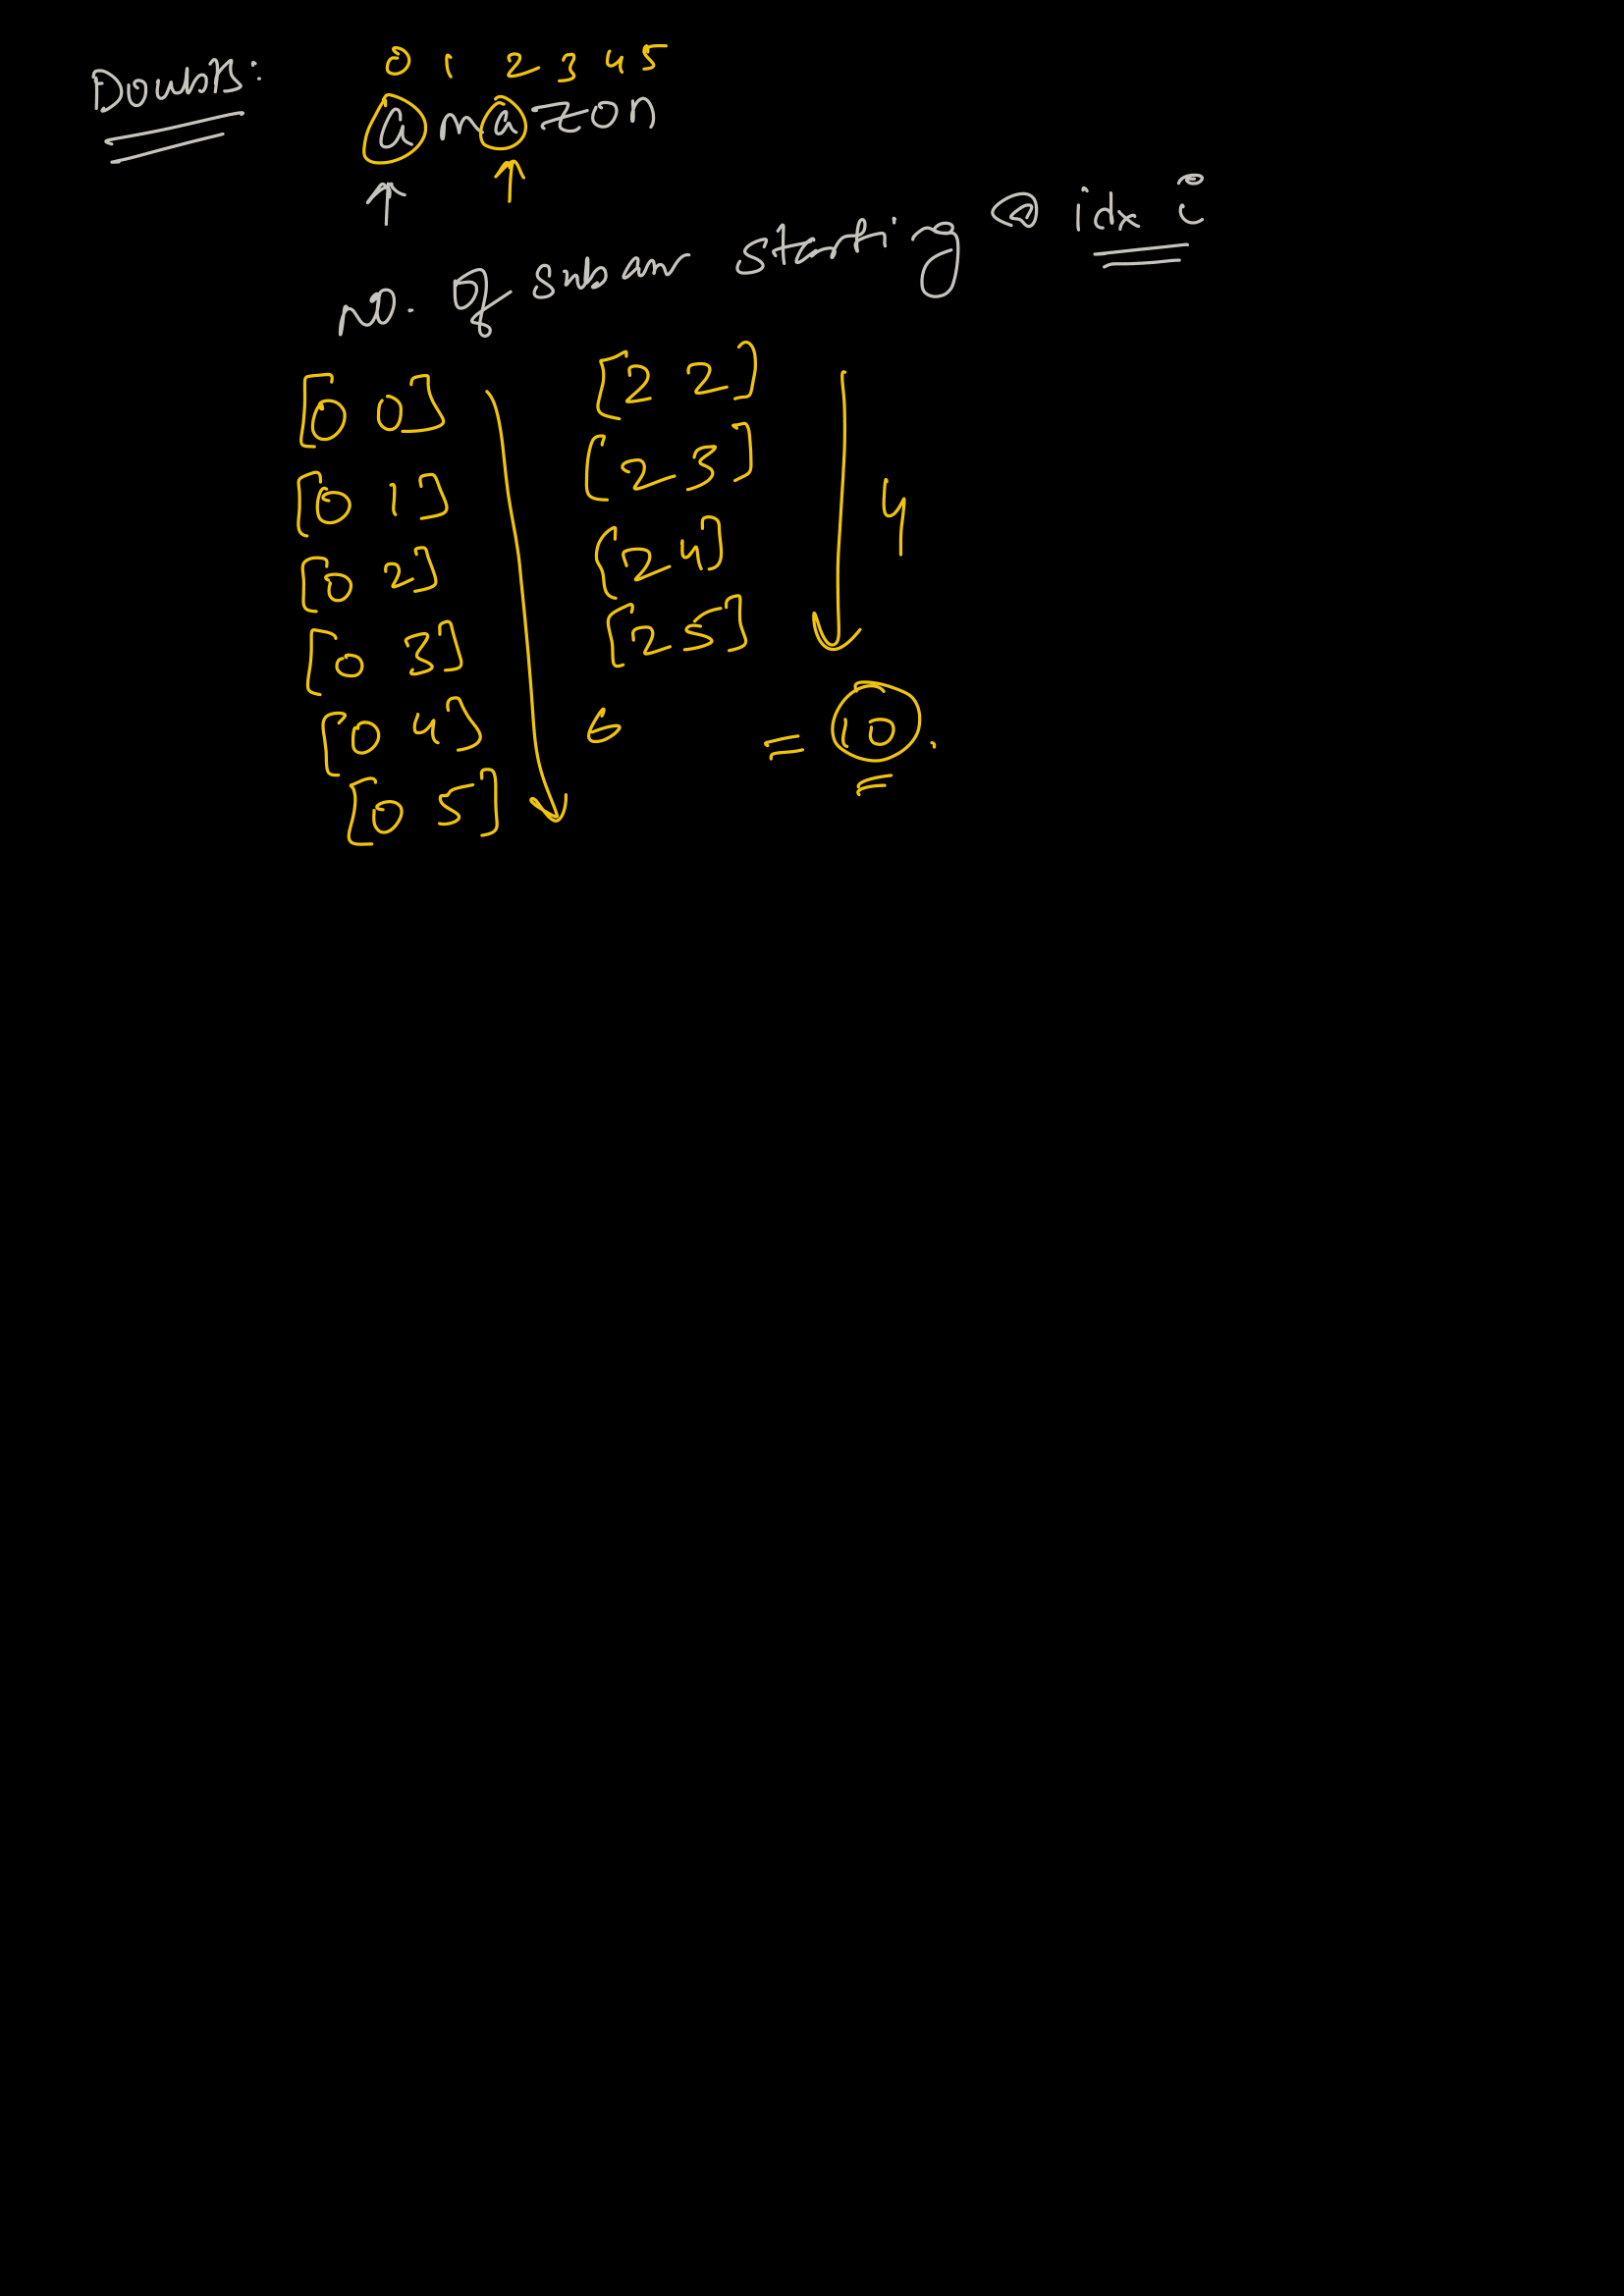 Doubts:
0 1 2 3 4 5
amazon
no. of subarr starting @ idx i
[0 0]
[0 1]
[0 2]
[0 3]
[0 4]
[0 5]
6
[2 2]
[2 3]
[2 4]
[2 5]
4
= 10.